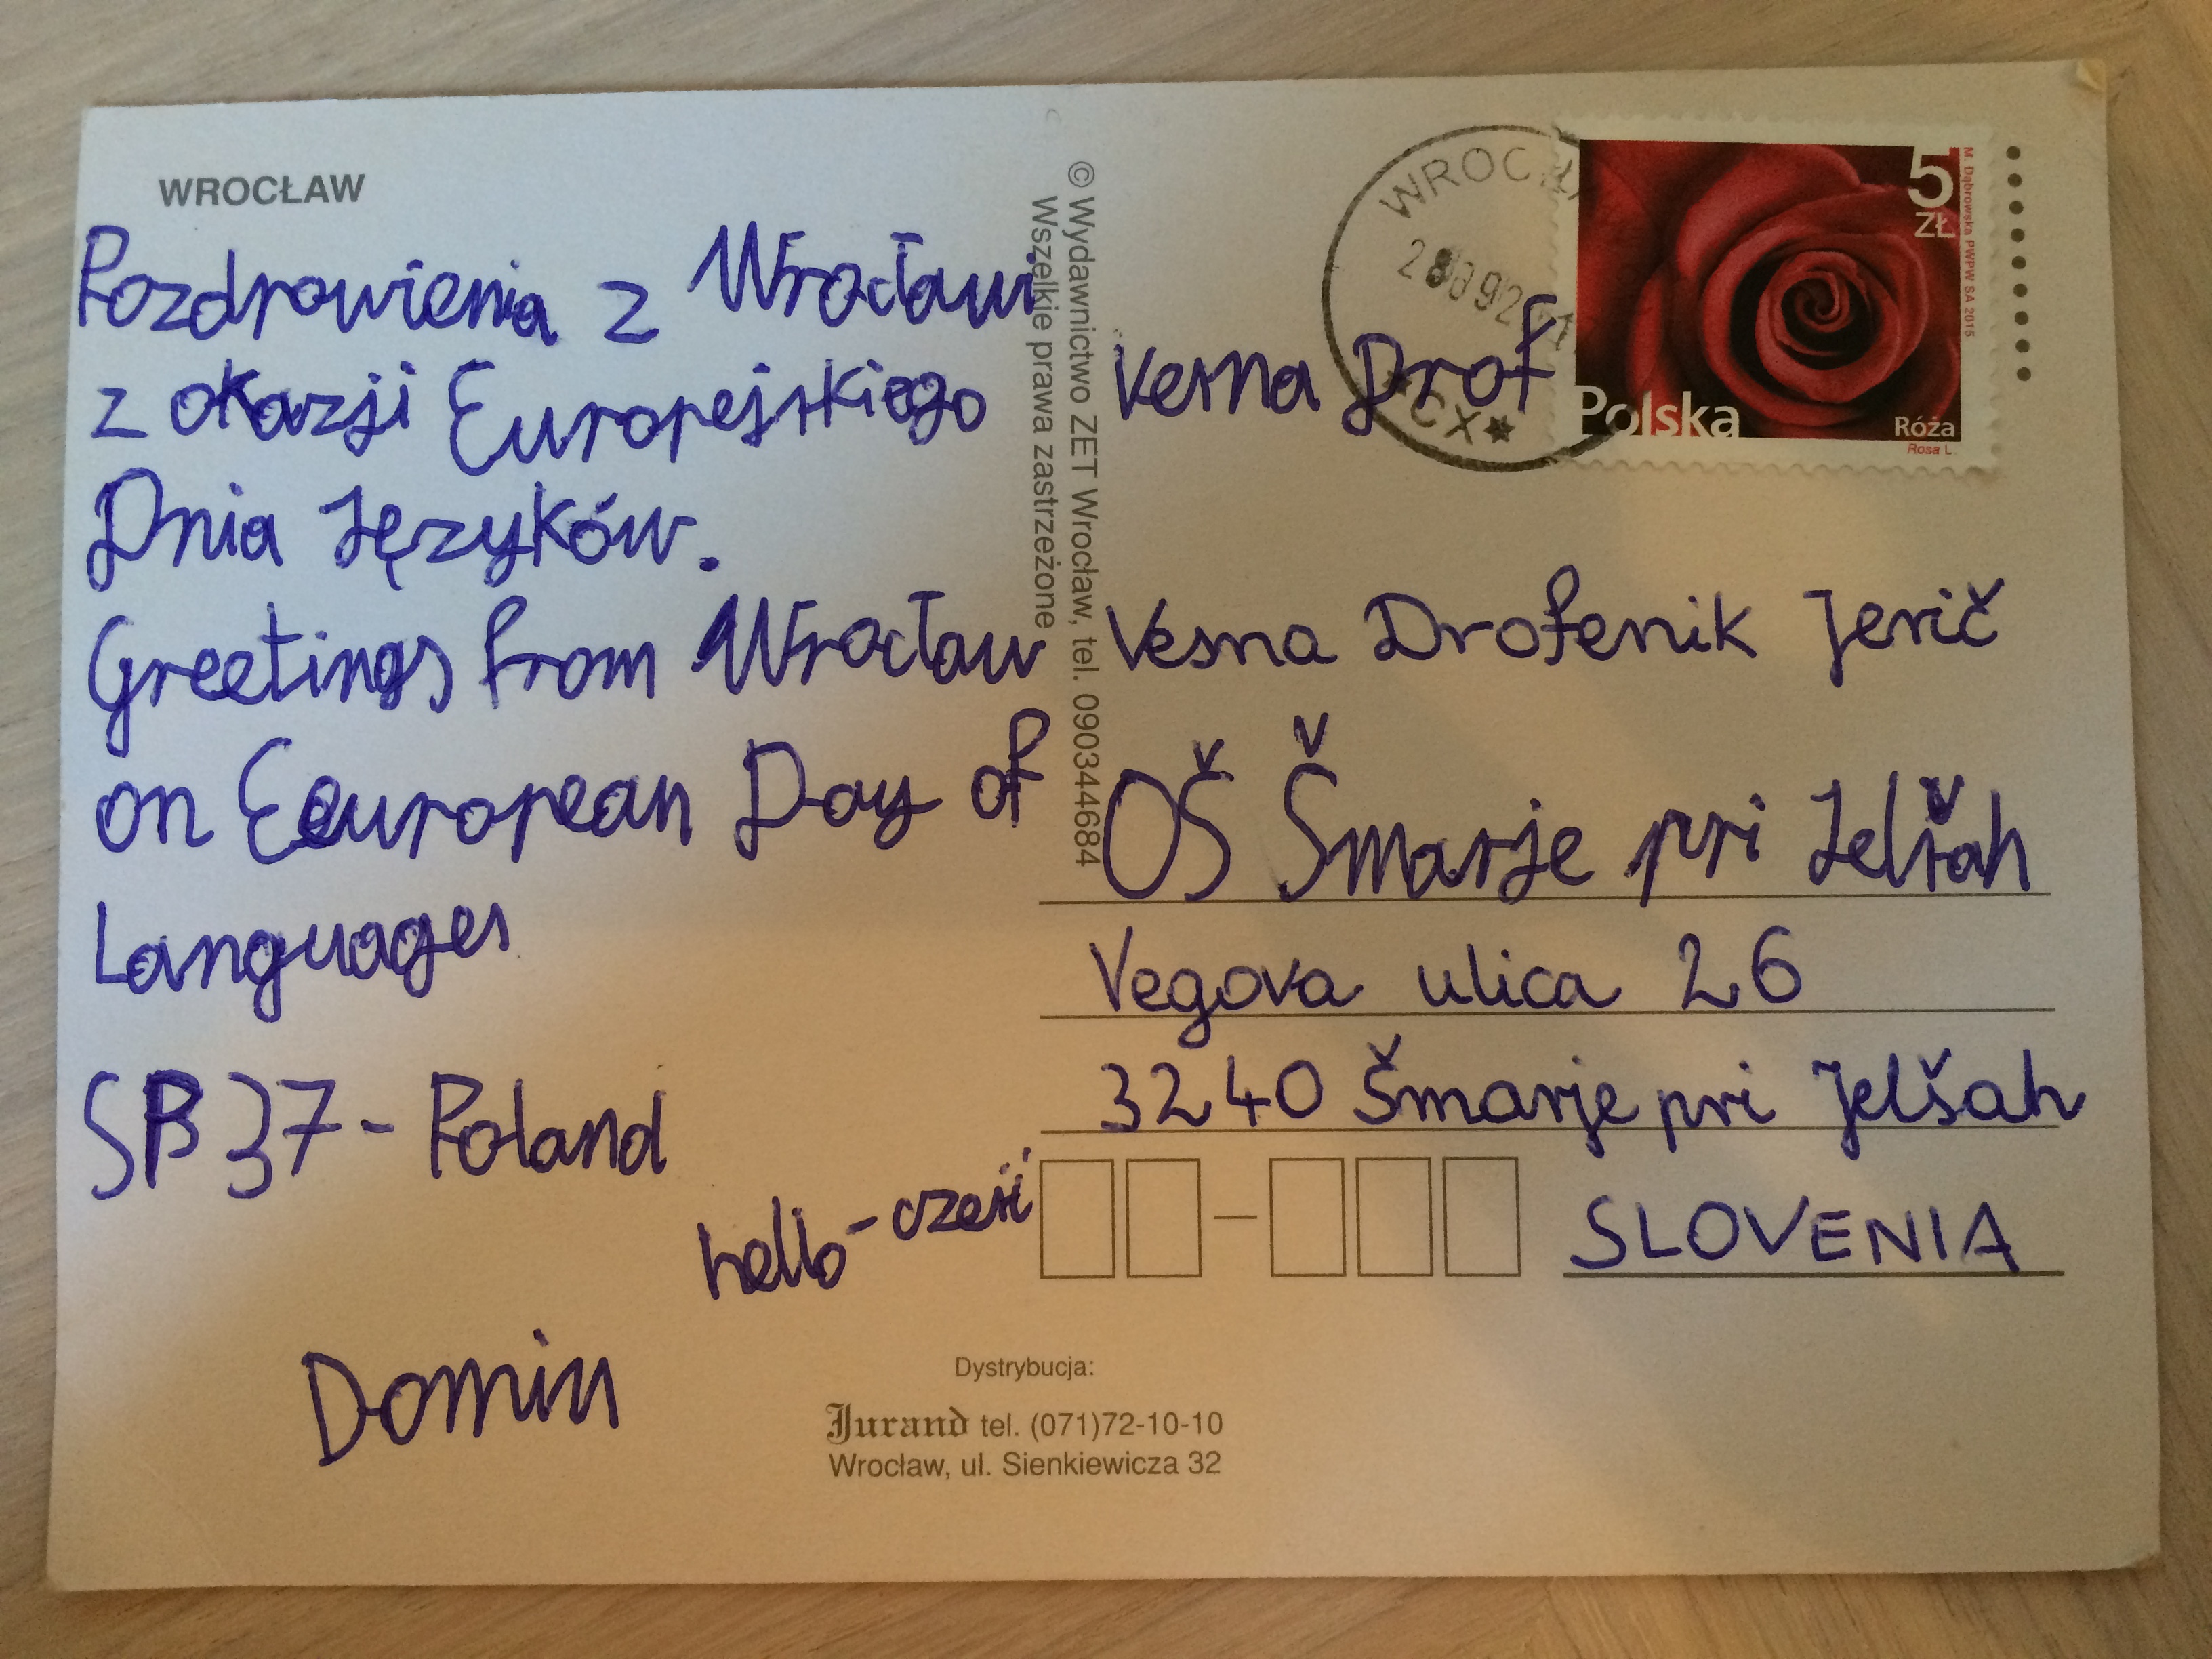 WROCŁAW
Pozdrowienia z Wrocławi
z okazji Europejskiego
Dnia Języków.
Greetings from Wrocław
on Eeuropean Day of
Languages
SP 37 - Poland
hello - cześć
Domin
© Wydawnictwo ZET Wrocław, tel. 090344684
Wszelkie prawa zastrzeżone
WROCŁ
5
ZŁ
M. Dąbrowska PWPW SA 2015
Polska
Róża
Rosa L.
CX★
Vesna Drof
Vesna Drofenik Jerič
OŠ Šmarje pri Jelšah
Vegova ulica 26
3240 Šmarje pri Jelšah
SLOVENIA
Dystrybucja:
Jurand tel. (071)72-10-10
Wrocław, ul. Sienkiewicza 32